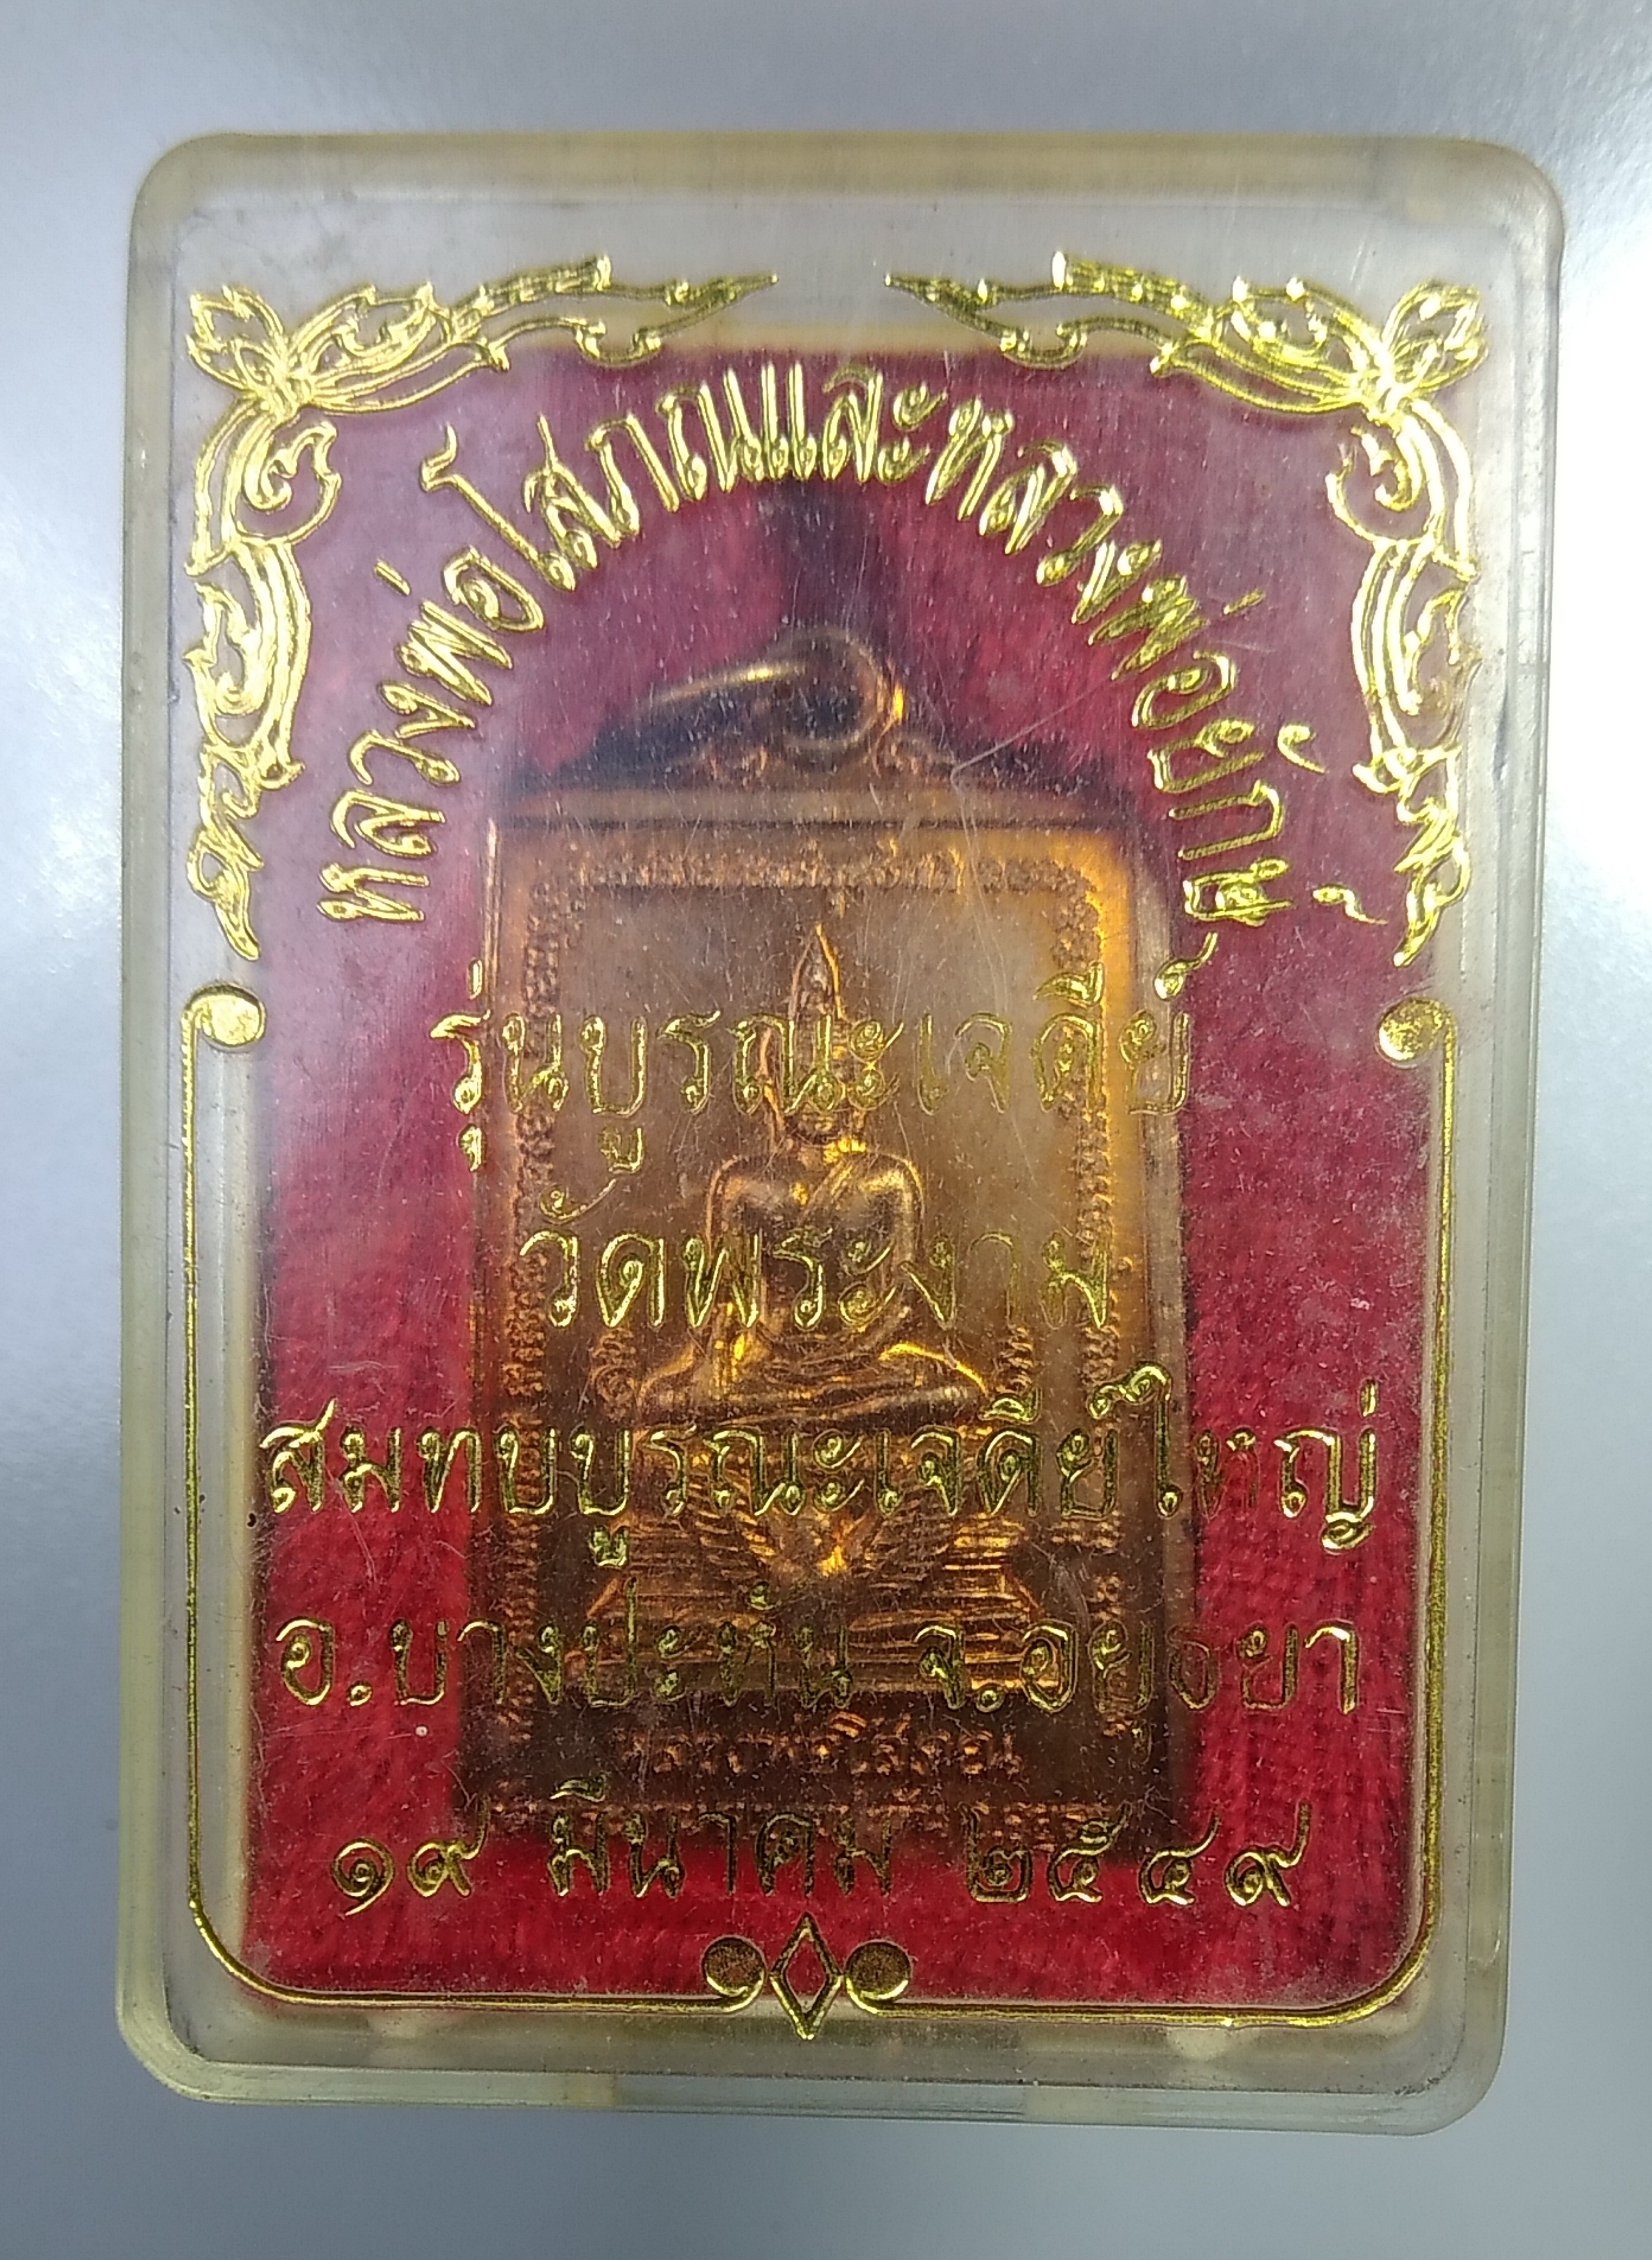 หลวงพ่อโสภณและหลวงพ่อยักษ์
รุ่นบูรณะเจดีย์
วัดพระงาม
สมทบบูรณะเจดีย์ใหญ่
อ.บางปะหัน จ.อยุธยา
หลวงพ่อโสภณ
๑๙ มีนาคม ๒๕๔๙